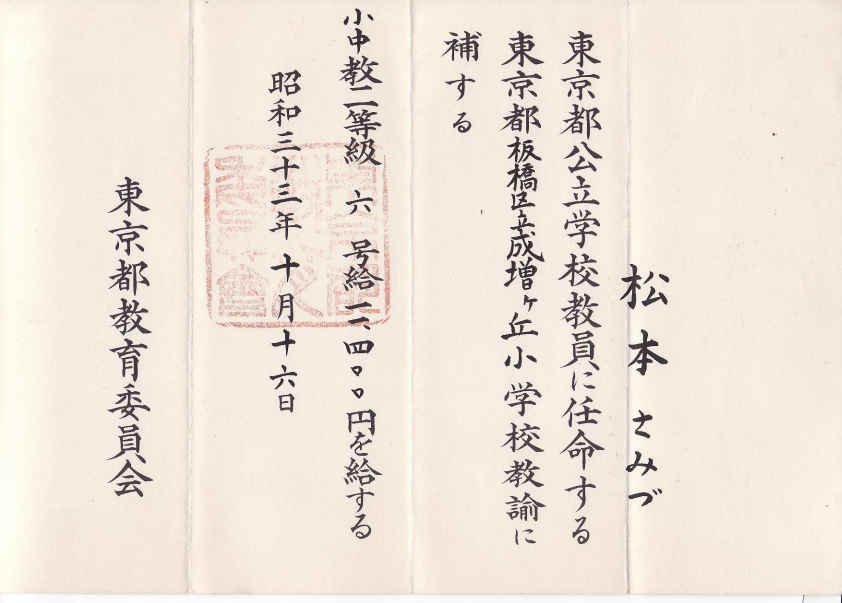 松本 さみづ
東京都公立学校教員に任命する
東京都板橋区立成増ヶ丘小学校教諭に
補する
小中教二等級 六 号給一二、四〇〇円を給する
昭和三十三年十月十六日
東京都教育委員会